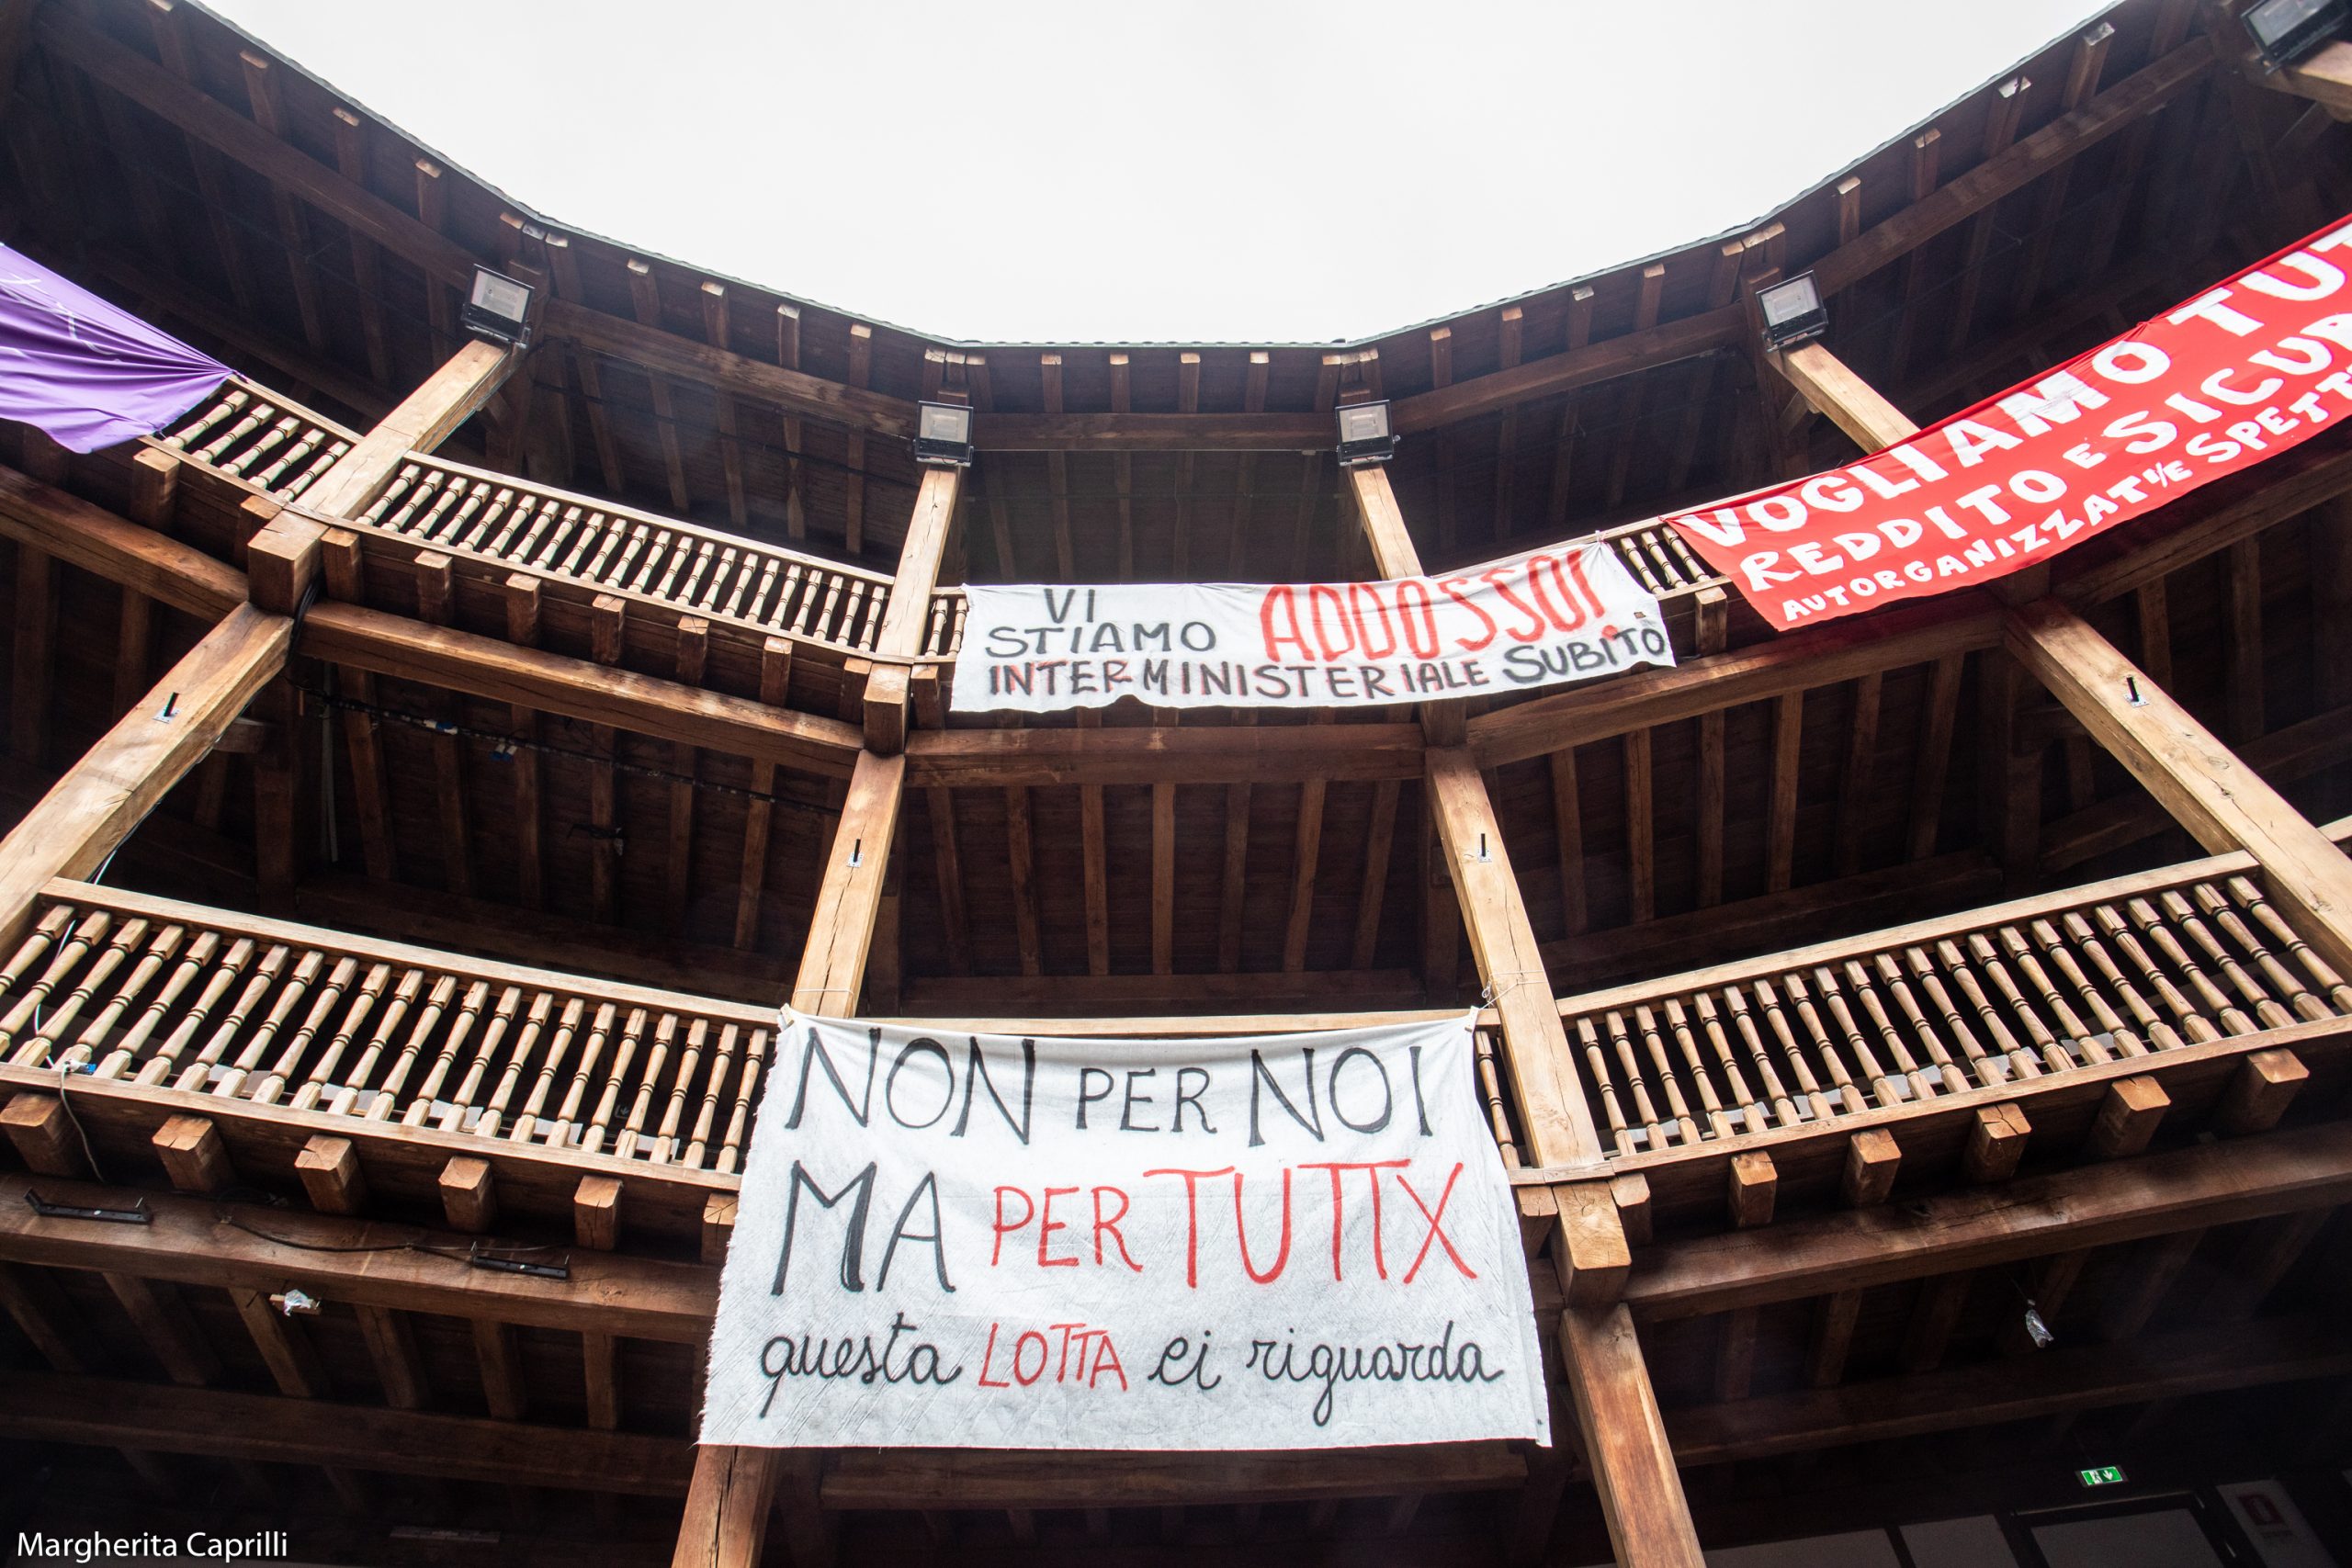 VOGLIAMO
REDDITO E
AUTORGANIZZAT*/E
VI
STIAMO ADDOSSO!
INTERMINISTERIALE SUBITO
NON PER NOI
MA PER TUTTX
questa LOTTA ci riguarda
Margherita Caprilli